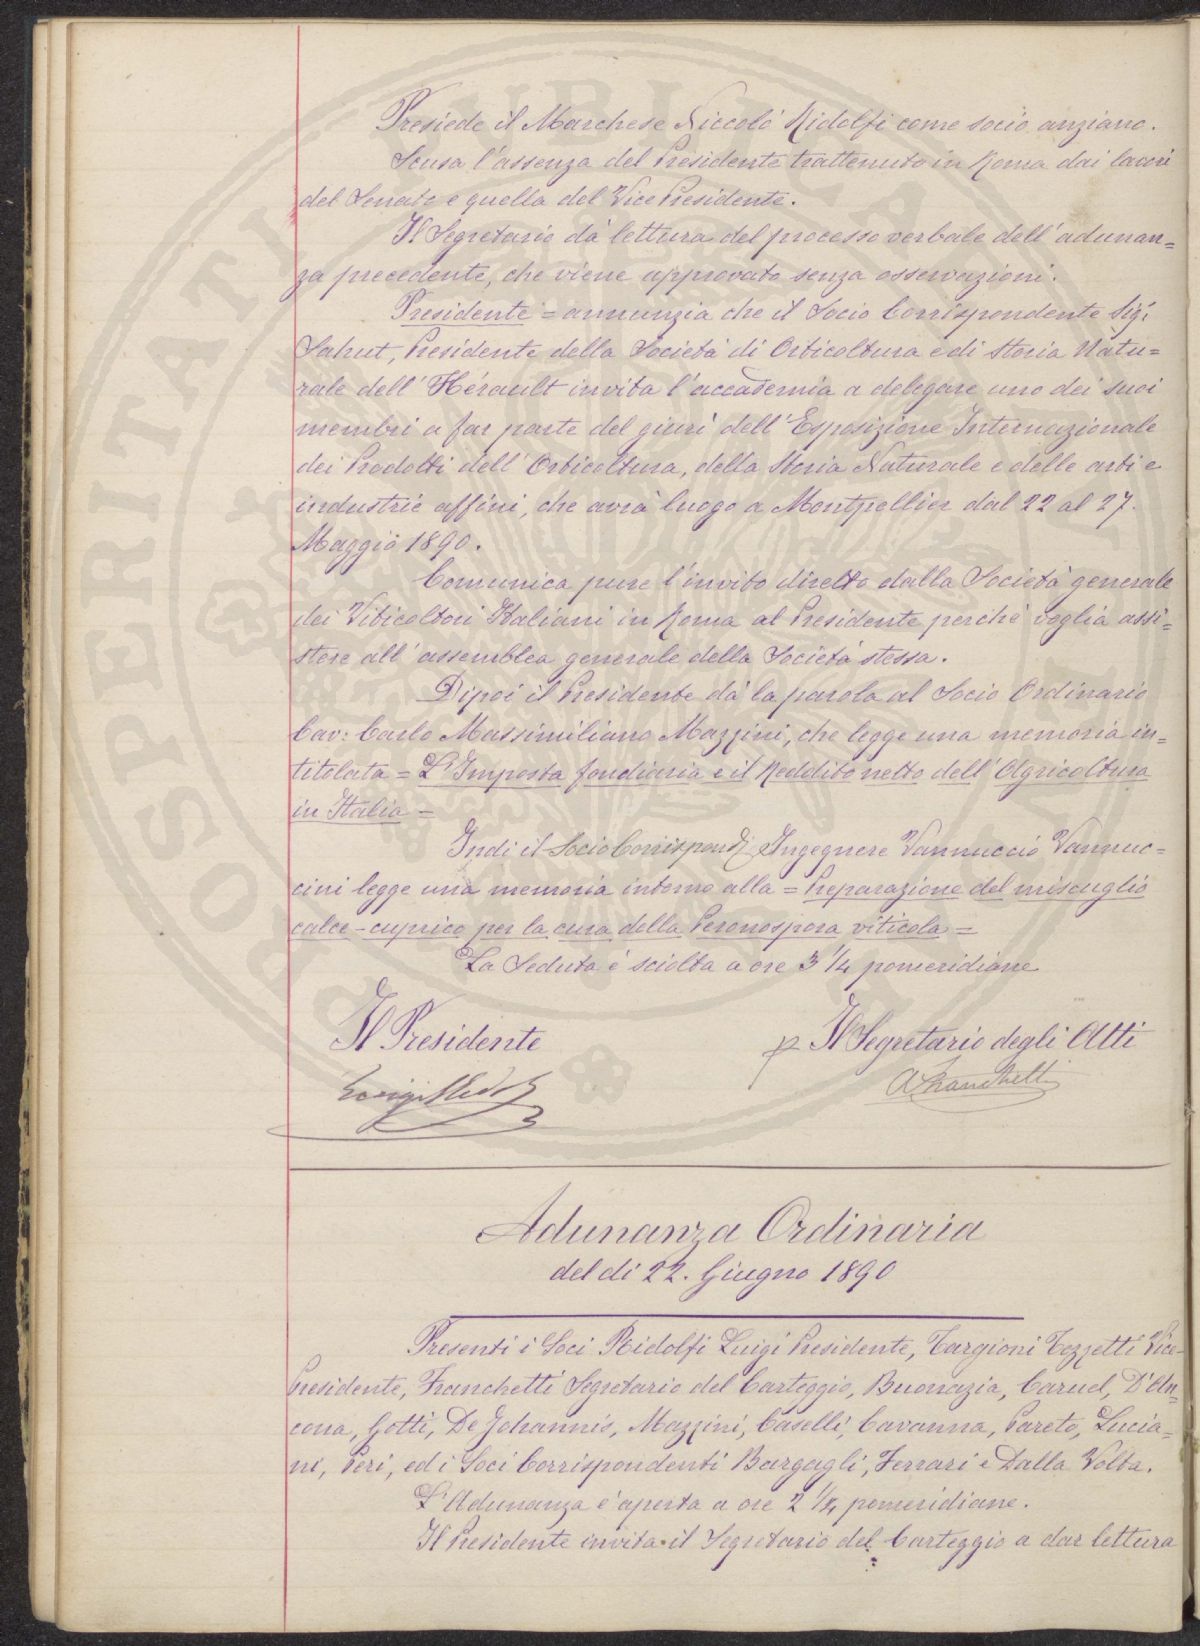 Presiede il Marchese Niccolò Ridolfi come socio anziano.
Scusa l'assenza del Presidente trattenuto in Roma dai lavori
del Senato e quella del Vice Presidente.
Il Segretario dà lettura del processo verbale dell'adunan=
za precedente, che viene approvato senza osservazioni.
Presidente = annunzia che il Socio Corrispondente Sig:
Sahut, Presidente della Società di Orticoltura e di Storia Natu=
rale dell'Hérault invita l'accademia a delegare uno dei suoi
membri a far parte del giurì dell'Esposizione Internazionale
dei Prodotti dell'Orticoltura, della Storia Naturale e delle arti e
industrie affini, che avrà luogo a Montpellier dal 22 al 27.
Maggio 1890.
Comunica pure l'invito diretto dalla Società generale
dei Viticoltori Italiani in Roma al Presidente perchè voglia assi=
stere all'assemblea generale della Società stessa.
Dipoi il Presidente dà la parola al Socio Ordinario
Cav: Carlo Massimiliano Mazzini, che legge una memoria in=
titolata = L'Imposta fondiaria e il Reddito netto dell'Agricoltura
in Italia =
Indi il Socio Corrispond: Ingegnere Vannuccio Vannuc=
cini legge una memoria intorno alla = Preparazione del miscuglio
calce-cuprico per la cura della Peronospora viticola =
La Seduta è sciolta a ore 3 1/4 pomeridiane
Il Presidente
p Il Segretario degli Atti
Luigi Ridolfi
A Franchetti
Adunanza Ordinaria
del dì 22. Giugno 1890
Presenti i Soci Ridolfi Luigi Presidente, Targioni Tozzetti Vice-
Presidente, Franchetti Segretario del Carteggio, Buonazia, Caruel, D'An=
cona, Gotti, De Johannis, Mazzini, Caselli, Cavanna, Pareto, Lucia=
ni, Peri, ed i Soci Corrispondenti Bargagli, Ferrari e Dalla Volta.
L'Adunanza è aperta a ore 2 1/4 pomeridiane.
Il Presidente invita il Segretario del Carteggio a dar lettura
PROSPERITATI PUBLICAE